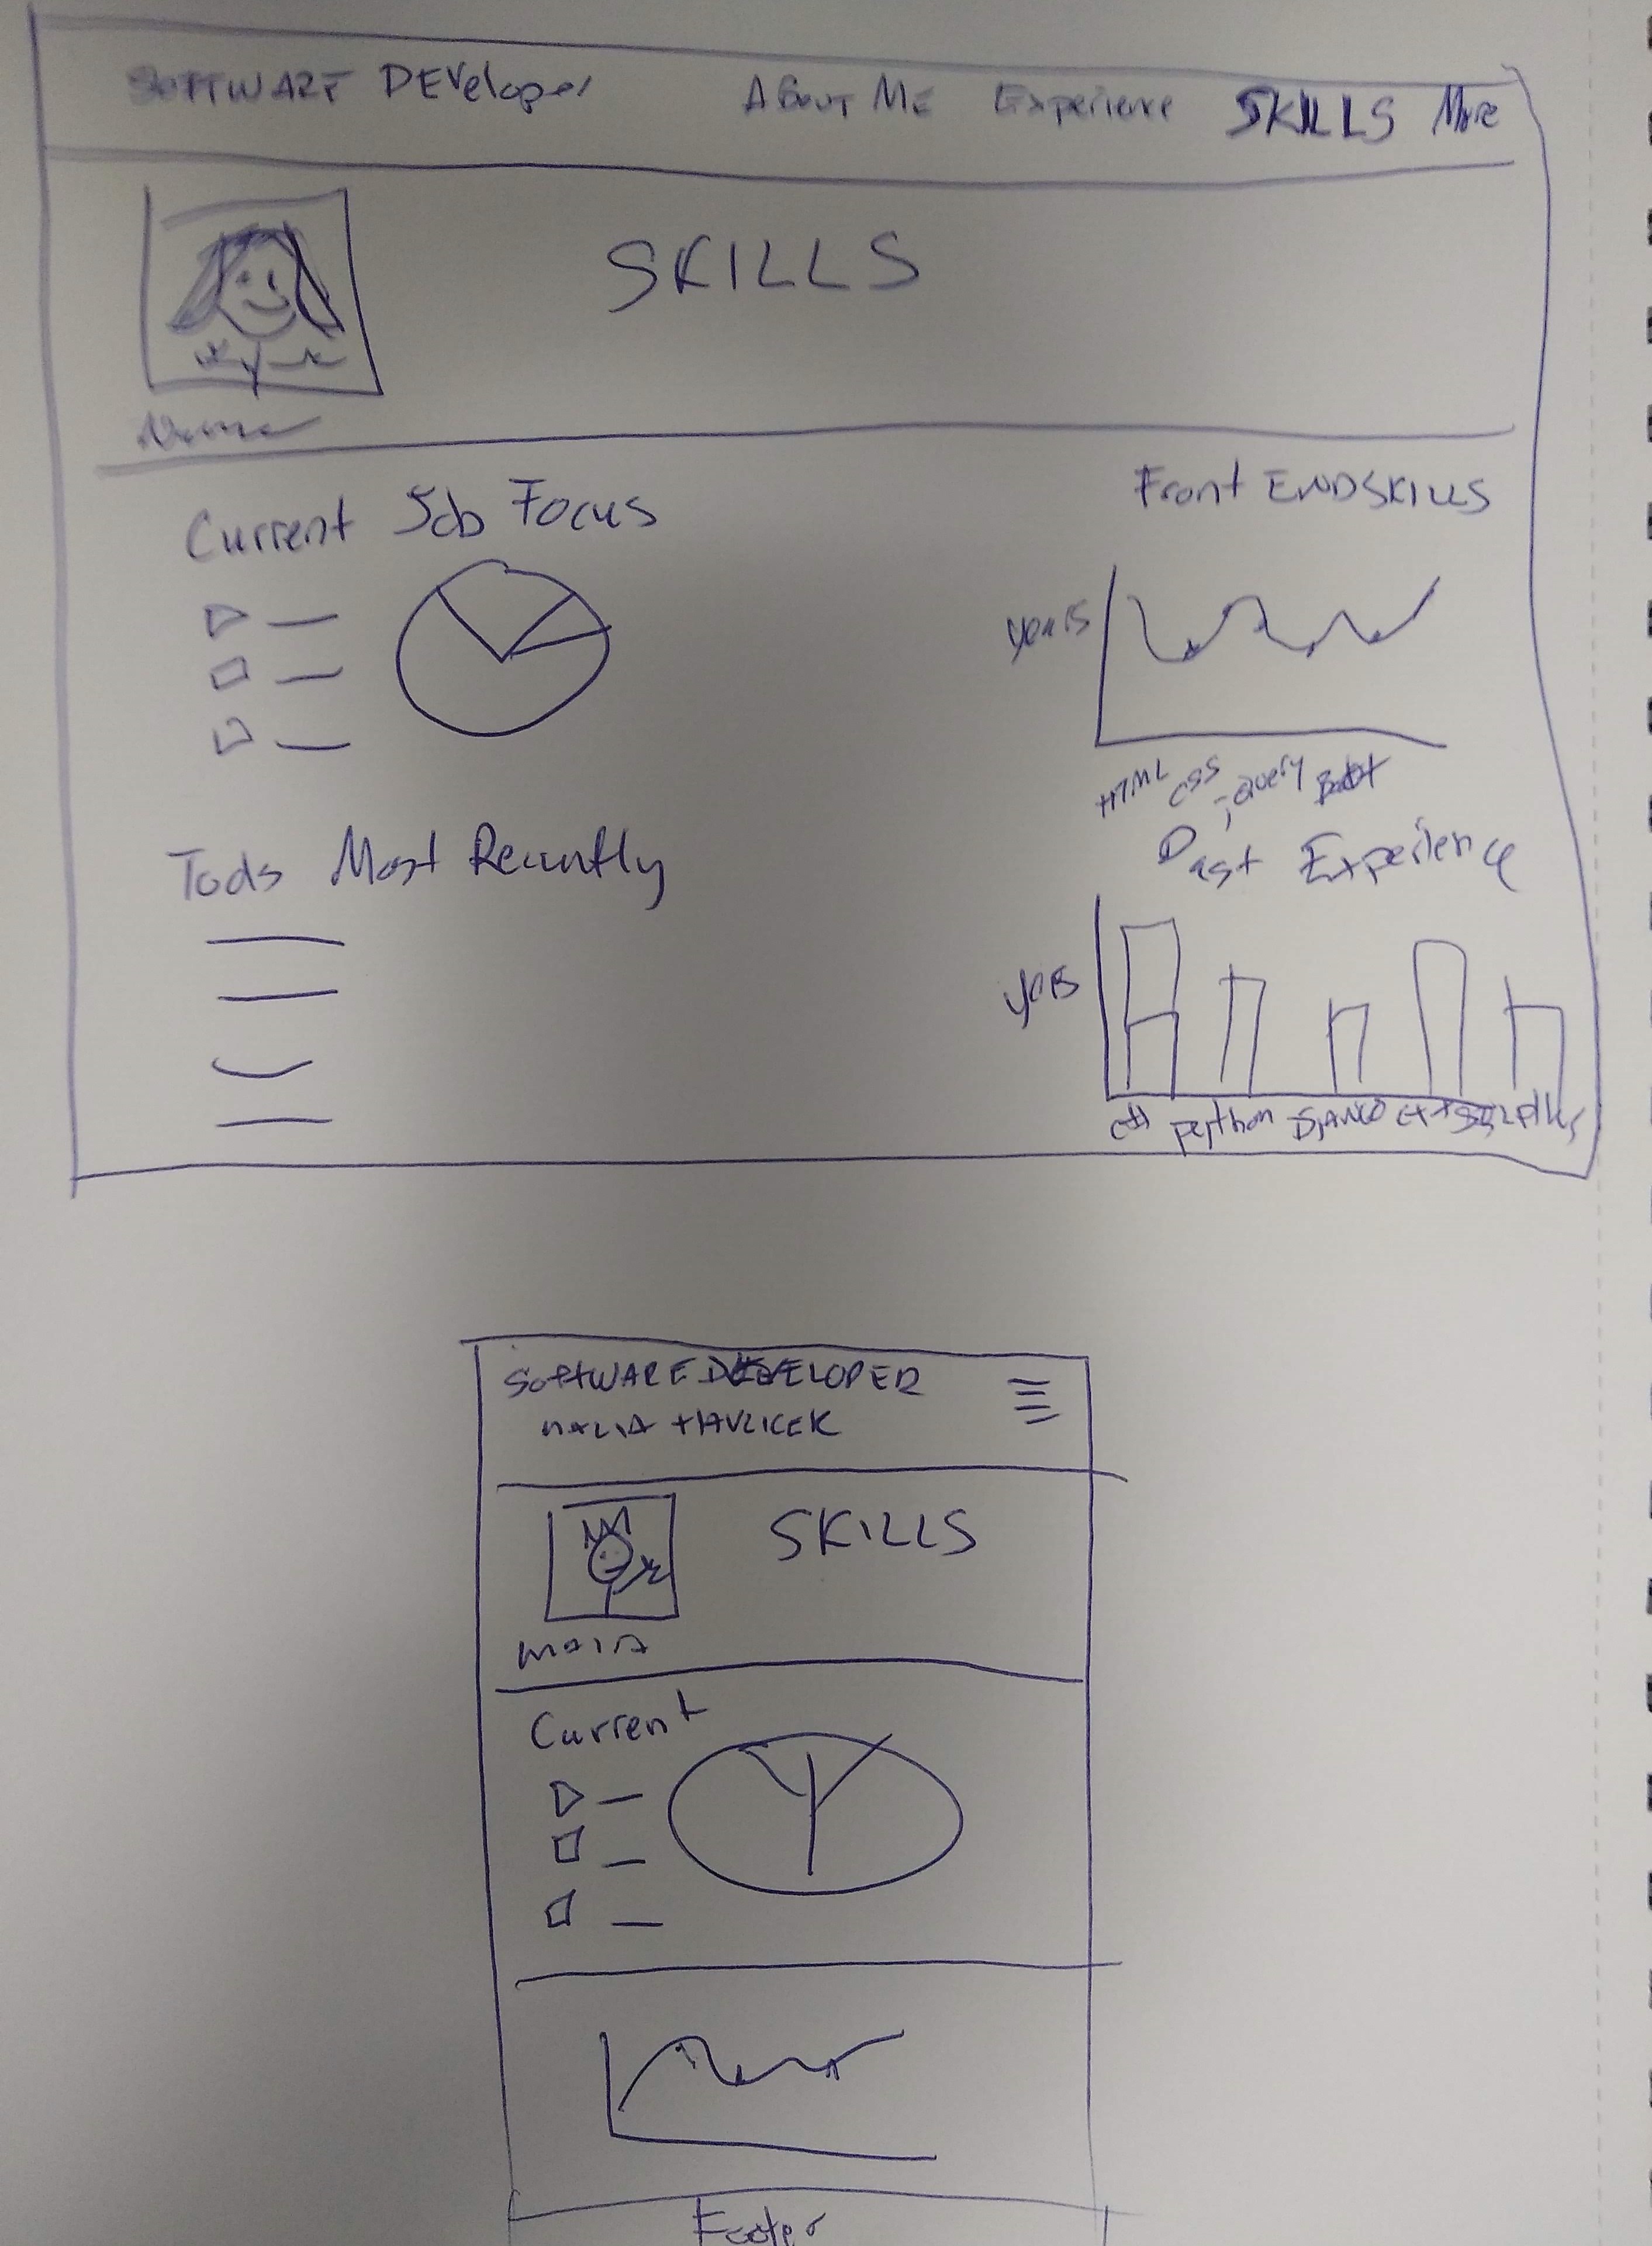 SOFTWARE DEveloper About Me Experience SKILLS More
SKILLS
Name
Current Job Focus
Front END SKILLS
years
HTML CSS jQuery Boot
Tools Most Recently
Past Experience
python DJANGO C++
SOFTWARE DEVELOPER
MALIA HAVLICEK
SKILLS
Current
Footer